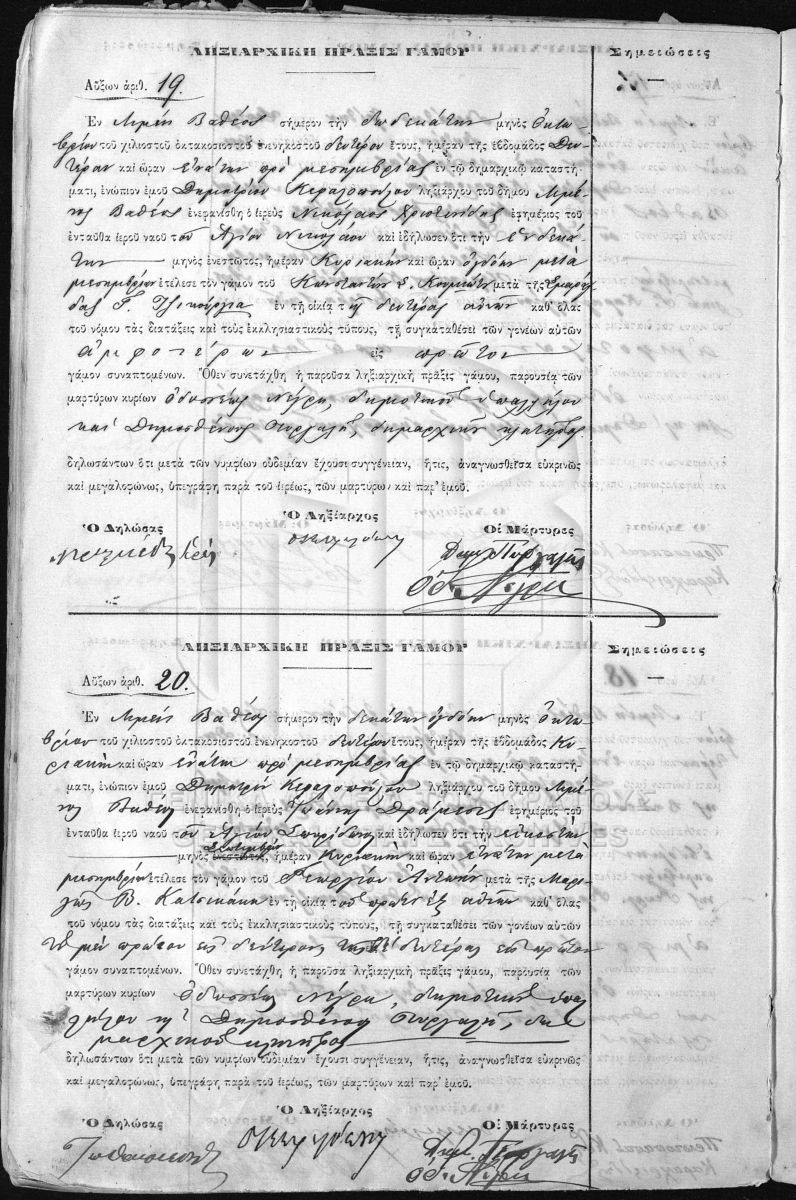 ΛΗΞΙΑΡΧΙΚΗ ΠΡΑΞΙΣ ΓΑΜΟΥ
Σημειώσεις
Αὔξων ἀριθ. 19.
Ἐν Λιμένι Βαθέος σήμερον τὴν δωδεκάτην μηνὸς Ὀκτω-
βρίου τοῦ χιλιοστοῦ ὀκτακοσιοστοῦ ἐνενηκοστοῦ δευτέρου ἔτους, ἡμέραν τῆς ἑβδομάδος Δευ-
τέραν καὶ ὥραν ἐνάτην πρὸ μεσημβρίας ἐν τῷ δημαρχικῷ καταστή-
ματι, ἐνώπιον ἐμοῦ Δημητρίου Κεφαλοπούλου ληξιάρχου τοῦ δήμου Λιμέ-
νος Βαθέος ἐνεφανίσθη ὁ ἱερεὺς Νικόλαος ἐφημέριος τοῦ
ἐνταῦθα ἱεροῦ ναοῦ τοῦ Ἁγίου Νικολάου καὶ ἐδήλωσεν ὅτι τὴν ἑνδεκά-
την μηνὸς ἐνεστῶτος, ἡμέραν Κυριακὴν καὶ ὥραν ὀγδόην μετὰ
μεσημβρίαν ἐτέλεσε τὸν γάμον τοῦ Κωνσταντίνου μετὰ τῆς Σμαράγ-
δας Γ. ἐν τῇ οἰκίᾳ τῆς δευτέρας αὐτῶν καθ' ὅλας
τοῦ νόμου τὰς διατάξεις καὶ τοὺς ἐκκλησιαστικοὺς τύπους, τῇ συγκαταθέσει τῶν γονέων αὐτῶν
ἀμφοτέρων εἰς πρῶτον
γάμον συναπτομένων. Ὅθεν συνετάχθη ἡ παροῦσα ληξιαρχικὴ πρᾶξις γάμου, παρουσίᾳ τῶν
μαρτύρων κυρίων Ὀδυσσέως Νέγρη, δημοτικοῦ ὑπαλλήλου
καὶ Δημοσθένους Πυργαλῆ, δημαρχικοῦ κλητῆρος
δηλωσάντων ὅτι μετὰ τῶν νυμφίων οὐδεμίαν ἔχουσι συγγένειαν, ἥτις, ἀναγνωσθεῖσα εὐκρινῶς
καὶ μεγαλοφώνως, ὑπεγράφη παρὰ τοῦ ἱερέως, τῶν μαρτύρων καὶ παρ' ἐμοῦ.
Ὁ Δηλώσας
Ὁ Ληξίαρχος
Οἱ Μάρτυρες
Δημ. Πυργαλῆς
Ὀδ. Νέγρη
ΛΗΞΙΑΡΧΙΚΗ ΠΡΑΞΙΣ ΓΑΜΟΥ
Σημειώσεις
Αὔξων ἀριθ. 20.
Ἐν Λιμένι Βαθέος σήμερον τὴν δεκάτην ὀγδόην μηνὸς Ὀκτω-
βρίου τοῦ χιλιοστοῦ ὀκτακοσιοστοῦ ἐνενηκοστοῦ δευτέρου ἔτους, ἡμέραν τῆς ἑβδομάδος Κυ-
ριακὴν καὶ ὥραν ἐνάτην πρὸ μεσημβρίας ἐν τῷ δημαρχικῷ καταστή-
ματι, ἐνώπιον ἐμοῦ Δημητρίου Κεφαλοπούλου ληξιάρχου τοῦ δήμου Λιμέ-
νος Βαθέος ἐνεφανίσθη ὁ ἱερεὺς Ἰωάννης ἐφημέριος τοῦ
ἐνταῦθα ἱεροῦ ναοῦ τοῦ Ἁγίου Σπυρίδωνος καὶ ἐδήλωσεν ὅτι τὴν εἰκοστὴν
μηνὸς ἐνεστῶτος Σεπτεμβρίου, ἡμέραν Κυριακὴν καὶ ὥραν ἐνάτην μετὰ
μεσημβρίαν ἐτέλεσε τὸν γάμον τοῦ Γεωργίου Ἀντωνίου μετὰ τῆς Μαρι-
γῶς Β. Κατσικάκη ἐν τῇ οἰκίᾳ τοῦ πρώτου ἐξ αὐτῶν καθ' ὅλας
τοῦ νόμου τὰς διατάξεις καὶ τοὺς ἐκκλησιαστικοὺς τύπους, τῇ συγκαταθέσει τῶν γονέων αὐτῶν
τοῦ μὲν πρώτου εἰς δεύτερον τῆς δὲ δευτέρας εἰς πρῶτον
γάμον συναπτομένων. Ὅθεν συνετάχθη ἡ παροῦσα ληξιαρχικὴ πρᾶξις γάμου, παρουσίᾳ τῶν
μαρτύρων κυρίων Ὀδυσσέως Νέγρη, δημοτικοῦ ὑπαλ-
λήλου καὶ Δημοσθένους Πυργαλῆ, δη-
μαρχικοῦ κλητῆρος
δηλωσάντων ὅτι μετὰ τῶν νυμφίων οὐδεμίαν ἔχουσι συγγένειαν, ἥτις, ἀναγνωσθεῖσα εὐκρινῶς
καὶ μεγαλοφώνως, ὑπεγράφη παρὰ τοῦ ἱερέως, τῶν μαρτύρων καὶ παρ' ἐμοῦ.
Ὁ Δηλώσας
Ὁ Ληξίαρχος
Οἱ Μάρτυρες
Δημ. Πυργαλῆς
Ὀδ. Νέγρη